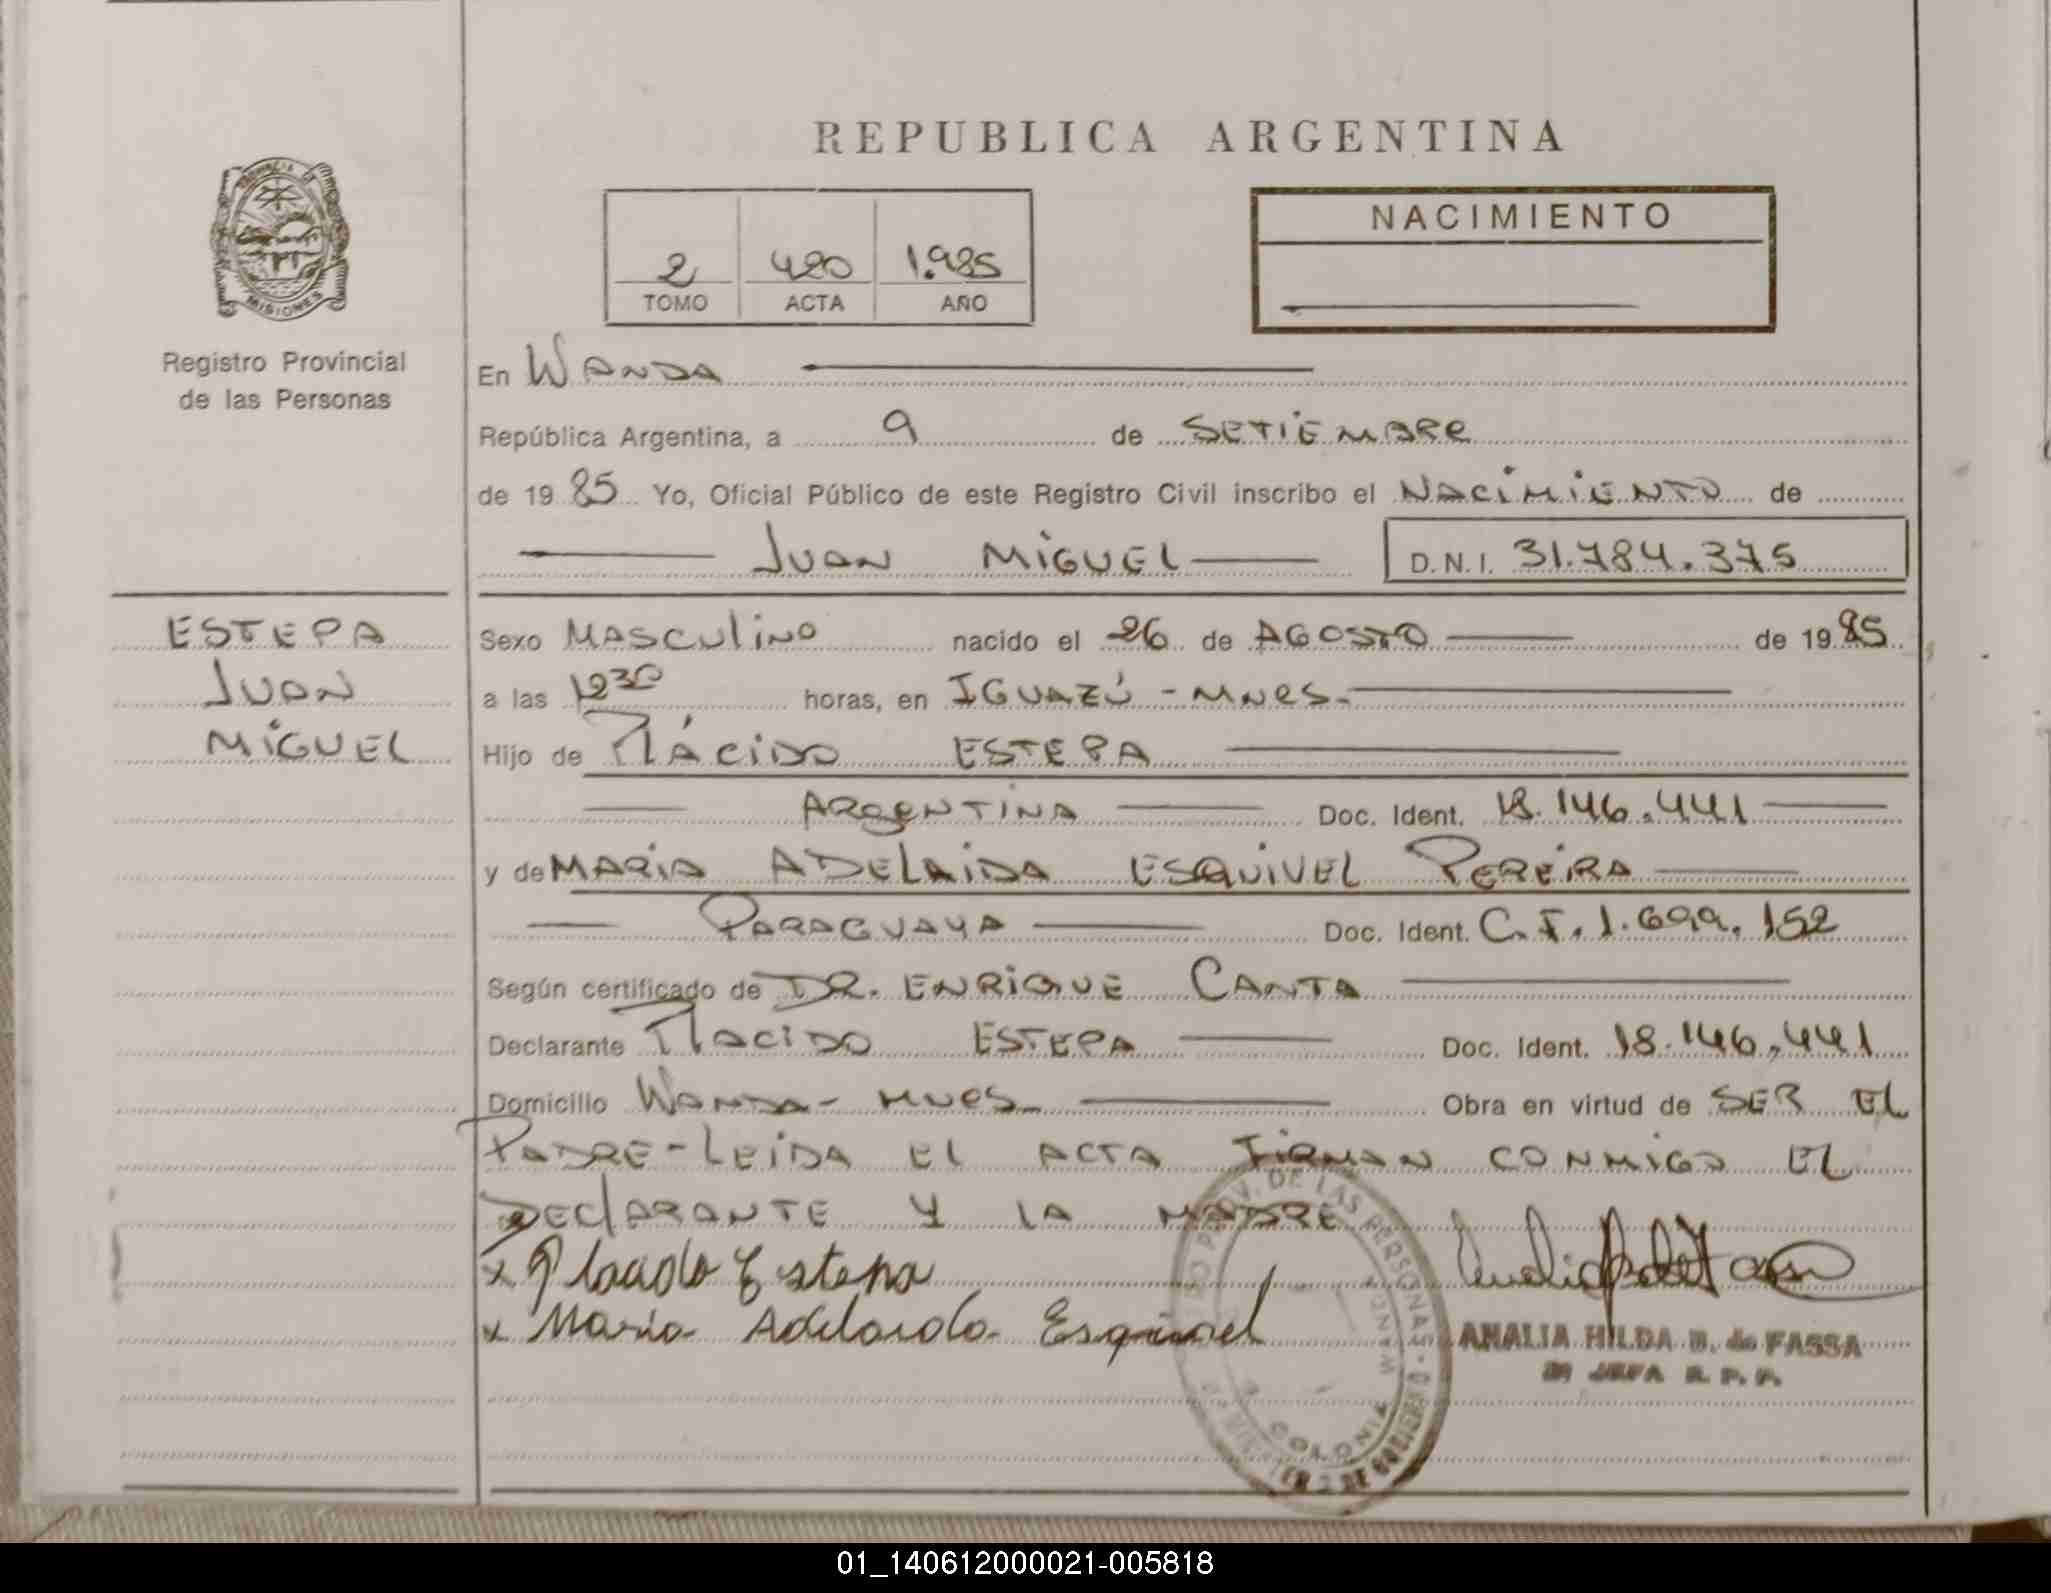 REPUBLICA ARGENTINA
PROVINCIA DE MISIONES
Registro Provincial
de las Personas
2 420 1.985
TOMO ACTA AÑO
NACIMIENTO
En WANDA
República Argentina, a 9 de SETIEMBRE
de 19 85 Yo, Oficial Público de este Registro Civil inscribo el NACIMIENTO de
JUAN MIGUEL D.N.I. 31.784.375
ESTEPA
JUAN
MIGUEL
Sexo MASCULINO nacido el 26 de AGOSTO de 19 85
a las 12 30 horas, en IGUAZÚ - MNES-
Hijo de PLÁCIDO ESTEPA
ARGENTINA Doc. Ident. 18.146.441
y de MARIA ADELAIDA ESQUIVEL PEREIRA
PARAGUAYA Doc. Ident. C.I. 1.699.152
Según certificado de DR. ENRIQUE CANTA
Declarante PLACIDO ESTEPA Doc. Ident. 18.146.441
Domicilio WANDA - MNES- Obra en virtud de SER EL
PADRE - LEIDA EL ACTA FIRMAN CONMIGO EL
DECLARANTE Y LA MADRE
x Placido Estepa
x Maria Adelaida Esquivel
PROV. DE LAS PERSONAS
COLONIA WANDA
AMALIA HILDA B. de FASSA
JEFA R. P. P.
01_140612000021-005818